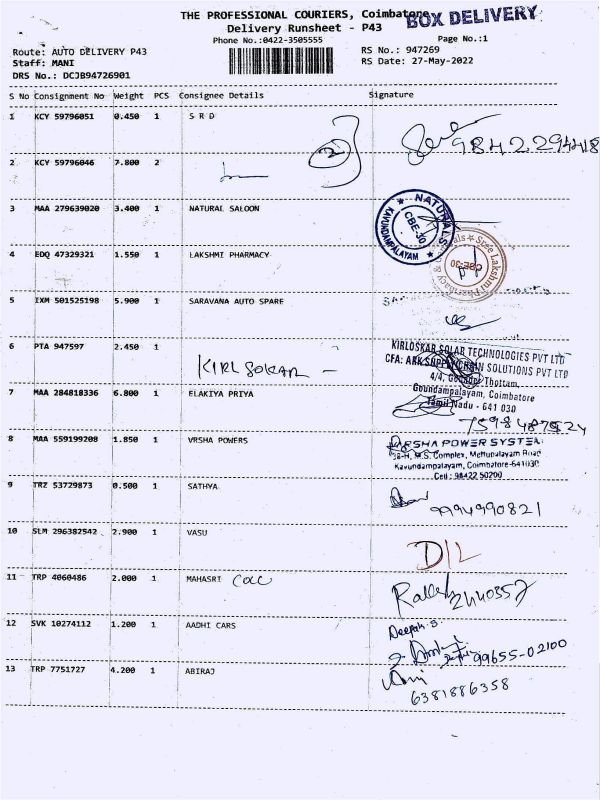 THE PROFESSIONAL COURIERS, Coimbatore
BOX DELIVERY
Delivery Runsheet - P43
Phone No.:0422-3505555
Page No.:1
Route: AUTO DELIVERY P43
RS No.: 947269
Staff: MANI
RS Date: 27-May-2022
DRS No.: DCJB94726901
S No Consignment No Weight PCS Consignee Details Signature
1 KCY 59796051 0.450 1 S R D
2 KCY 59796046 7.800 2
3 MAA 279639020 3.400 1 NATURAL SALOON
NATURALS
CBE-30
KAVUNDAMPALAYAM
4 EDQ 47329321 1.550 1 LAKSHMI PHARMACY
Sree Lakshmi Pharmacy &
CBE-30
5 IXM 501525198 5.900 1 SARAVANA AUTO SPARE
6 PTA 947597 2.450 1
KIRLOSKAR SOLAR TECHNOLOGIES PVT LTD
CFA: ARK SUPPLY CHAIN SOLUTIONS PVT LTD
Thottam,
Goundampalayam, Coimbatore
Tamil Nadu - 641 030
7 MAA 284818336 6.800 1 ELAKIYA PRIYA
8 MAA 559199208 1.850 1 VRSHA POWERS
M.S. Complex, Mettupalayam Road
Kavundampalayam, Coimbatore-641030
Cell : 98422 50200
9 TRZ 53729873 0.500 1 SATHYA
9994990821
10 SLM 296382542 2.900 1 VASU
D/L
11 TRP 4060486 2.000 1 MAHASRI
2440357
12 SVK 10274112 1.200 1 AADHI CARS
Deepak.S
99655-02100
13 TRP 7751727 4.200 1 ABIRAJ
6381886358